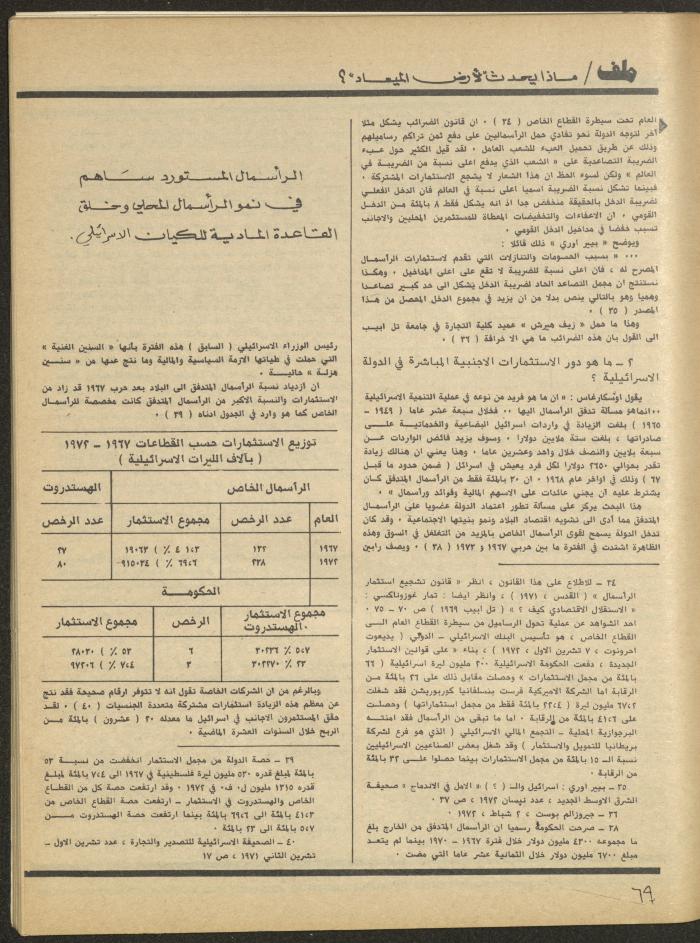 ملف / ماذا يحدث "لأرض الميعاد"؟
العام تحت سيطرة القطاع الخاص ( ٣٤ ) ٠ ان قانون الضرائب يشكل مثلا
آخر لتوجه الدولة نحو تفادي حمل الرأسماليين على دفع ثمن تراكم رساميلهم
وذلك عن طريق تحميل العبء للشعب العامل ٠ لقد قيل الكثير حول عبء
الضريبة التصاعدية على « الشعب الذي يدفع اعلى نسبة من الضريبة في
العالم » ولكن لسوء الحظ ان هذا الشعار لا يشجع الاستثمارات المشتركة ٠
فبينما تشكل نسبة الضريبة اسميا اعلى نسبة في العالم فان الدخل الفعلي
لضريبة الدخل بالحقيقة منخفض جدا اذ انه يشكل فقط ٨ بالمئة من الدخل
القومي ٠ ان الاعفاءات والتخفيضات المعطاة للمستثمرين المحليين والاجانب
تسبب خفضا في مداخيل الدخل القومي ٠
ويوضح « بيير اوري » ذلك قائلا :
٠٠٠ « بسبب الحسومات والتنازلات التي تقدم لاستثمارات الرأسمال
المصرح له ، فان اعلى نسبة للضريبة لا تقع على اعلى المداخيل ٠ وهكذا
نستنتج ان مجمل التصاعد الحاد لضريبة الدخل يشكل الى حد كبير تصاعدا
وهميا وهو بالتالي ينص بدلا من ان يزيد في مجموع الدخل المحصل من هذا
المصدر ( ٣٥ ) ٠
وهذا ما حمل « زيف هيرش » عميد كلية التجارة في جامعة تل ابيب
الى القول بان هذه الضرائب ما هي الا خرافة ( ٣٦ ) ٠
٢ ــ ما هو دور الاستثمارات الاجنبية المباشرة في الدولة
الاسرائيلية ؟
يقول اوسكارغاس : « ان ما هو فريد من نوعه في عملية التنمية الاسرائيلية
٠٠انماهو مسألة تدفق الرأسمال اليها ٠٠ فخلال سبعة عشر عاما ( ١٩٤٩ ــ
١٩٦٥ ) بلغت الزيادة في واردات اسرائيل البضاعية والخدماتية علــى
صادراتها ، بلغت ستة ملايين دولار٠ وسوف يزيد فائض الواردات عــن
سبعة بلايين والنصف خلال واحد وعشرين عاما ٠ وهذا يعني ان هنالك زيادة
تقدر بحوالي ٢٦٥٠ دولارا لكل فرد يعيش في اسرائيل ( ضمن حدود ما قبل
٦٧ ) وذلك في اواخر عام ١٩٦٨ ٠ ان ٣٠ بالمئة فقط من الرأسمال المتدفق كـان
يشترط عليه ان يجني عائدات على الاسهم المالية وفوائد ورأسمال » ٠
هذا البحث يركز على مسألة تطور اعتماد الدولة عضويا على الرأسمـال
المتدفق مما أدى الى تشويه اقتصاد البلاد ونمو بنيتها الاجتماعية ٠ وقد كان
تدخل الدولة يسمح لقوى الرأسمال الخاص بالمزيد من التغلغل في السوق وهذه
الظاهرة اشتدت في الفترة ما بين حربي ١٩٦٧ و ١٩٧٣ ( ٣٨ ) ٠ ويصف رابين
٣٤ ــ للاطلاع على هذا القانون ، انظر « قانون تشجيع استثمار
الرأسمال » ( القدس ، ١٩٧١ ) ، وانظر ايضا : تمار غوزوناكسي :
« الاستقلال الاقتصادي كيف ؟ » ( تل ابيب ١٩٦٩ ) ص ٧٠ ــ ٧٥ ٠
احد الشواهد عن عملية تحول الرساميل من سيطرة القطاع العام الــى
القطاع الخاص ، هو تأسيس البنك الاسرائيلي ــ الدولي ( يديعوت
احرونوت ، ٧ تشرين الاول ، ١٩٧٢ ) ، بناء « على قوانين الاستثمار
الجديدة ، دفعت الحكومة الاسرائيلية ٢٠٠ مليون ليرة اسرائيلية ( ٦٦
بالمئة من مجمل الاستثمارات » وحصلت مقابل ذلك على ٢٦ بالمئة مــن
الرقابة اما الشركة الاميركية فرست بنسلفانيا كوربوريشن فقد شغلت
٦٧٫٢ مليون ليرة ( ٢٢٫٤ بالمئة فقط من مجمل استثماراتها ) وحصلـت
على ٤١٫٦ بالمئة من الرقابة ٠ اما ما تبقى من الرأسمال فقد امتــه
البرجوازية المحلية ــ التجمع المالي الاسرائيلي ( الذي هو فرع لشركة
بريطانيا للتمويل والاستثمار ) وقد شغل بعض الصناعيين الاسرائيليين
نسبة الــ ١٥ بالمئة من مجمل الاستثمارات بينما حصلوا على ٣٢ بالمئة
من الرقابة ٠
٣٥ ــ بيير اوري : اسرائيل والــ ( ؟ ) « الامل في الاندماج » صحيفـة
الشرق الاوسط الجديد ، عدد نيسان ١٩٧٢ ، ص ٣٧ ٠
٣٦ ــ جيروزالم بوست ، ٢ شباط ، ١٩٧٢ ٠
٣٨ ــ صرحت الحكومة رسميا ان الرأسمال المتدفق من الخارج بلغ
ما مجموعه ٤٣٠٠ مليون دولار خلال فترة ١٩٦٧ ــ ١٩٧٠ بينما لم يتعـد
مبلغ ٦٧٠٠ مليون دولار خلال الثمانية عشر عاما التي مضت ٠
الرأسمال المستورد ساهم
في نمو الرأسمال المحلي وخلق
القاعدة المادية للكيان الاسرائيلي.
رئيس الوزراء الاسرائيلي ( السابق ) هذه الفترة بأنها « السنين الغنية »
التي حملت في طياتها الازمة السياسية والمالية وما نتج عنها من « سنــين
هزلة » حاليــة ٠
ان ازدياد نسبة الرأسمال المتدفق الى البلاد بعد حرب ١٩٦٧ قد زاد من
الاستثمارات والنسبة الاكبر من الرأسمال المتدفق كانت مخصصة للرأسمـال
الخاص كما هو وارد في الجدول ادناه ( ٣٩ ) ٠
توزيع الاستثمارات حسب القطاعات ١٩٦٧ ــ ١٩٧٢
( بآلاف الليرات الاسرائيلية )
الرأسمال الخاص الهستدروت
العام عدد الرخص مجموع الاستثمار عدد الرخص
١٩٦٧ ١٣٢ ٤١٫٣ ٪ ) ١٩٠٦٣ ٢٧
١٩٧٢ ٢٣٨ ٦٩٫٦ ٪ ) ٩١٥٠٣٤ ٨٠
الحكومــة
مجموع الاستثمار الهستدروت٠ الرخص مجموع الاستثمار
٥٫٧ ٪ ٣٠٢٣٦ ٦ ٥٣ ٪ ) ٢٨٠٣٠
٢٣ ٪ ٣٠٢٢٧٠ ٣ ٧٫٤ ٪ ) ٩٧٢٠٦
وبالرغم من ان الشركات الخاصة تقول انه لا تتوفر ارقام صحيحة فقد نتج
عن معظم هذه الزيادة استثمارات مشتركة متعددة الجنسيات ( ٤٠ ) ٠ لقـد
حقق المستثمرون الاجانب في اسرائيل ما معدله ٢٠ ( عشرون ) بالمئة مــن
الربح خلال السنوات العشرة الماضية ٠
٣٩ ــ حصة الدولة من مجمل الاستثمار انخفضت من نسبــة ٥٣
بالمئة لمبلغ قدره ٥٣٠ مليون ليرة فلسطينية في ١٩٦٧ الى ٧٫٤ بالمئة لمبلـغ
قدره ١٣١٥ مليون ل٠ ف٠ في ١٩٧٢ ٠ وقد ارتفعت حصة كل من القطـاع
الخاص والهستدروت في الاستثمار ــ ارتفعت حصة القطاع الخاص من
٤١٫٣ بالمئة الى ٦٩٫٦ بالمئة بينما ارتفعت حصة الهستدروت مــن
٥٫٧ بالمئة الى ٢٣ بالمئة ٠
٤٠ ــ الصحيفة الاسرائيلية للتصدير والتجارة ، عدد تشرين الاول ــ
تشرين الثاني ١٩٧١ ، ص ١٧
٦٩